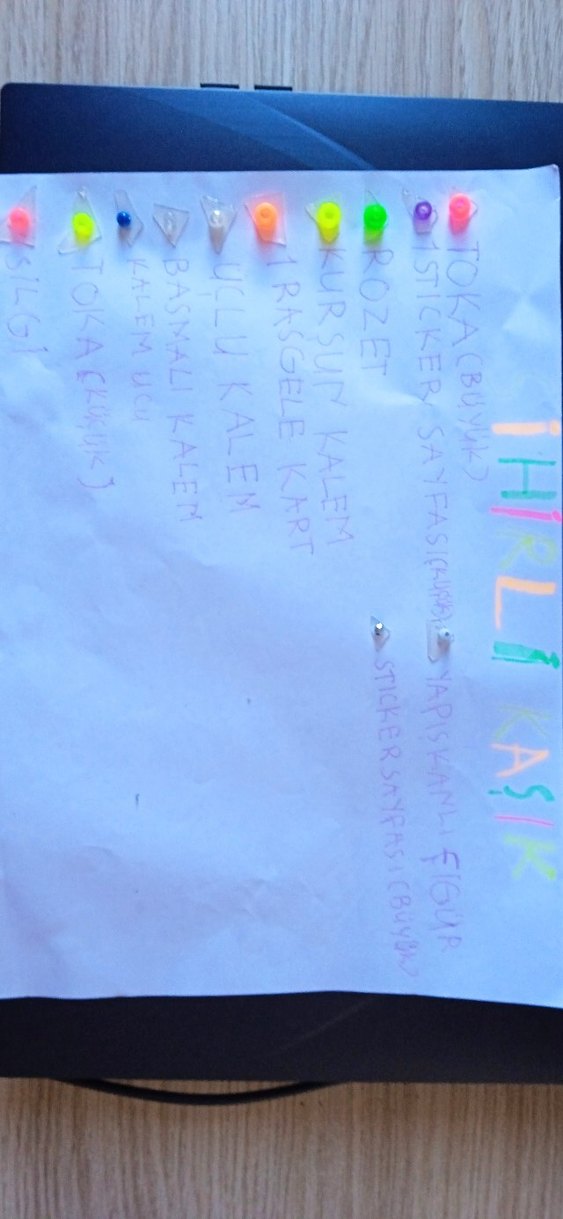 İHİRLİ KAŞIK
TOKA(BÜYÜK)
1 STICKER SAYFASI(KÜÇÜK)
ROZET
KURŞUN KALEM
1 RASGELE KART
UÇLU KALEM
BASMALI KALEM
KALEM UCU
TOKA(KÜÇÜK)
SİLGİ
YAPIŞKANLI FİGÜR
STICKER SAYFASI(BÜYÜK)